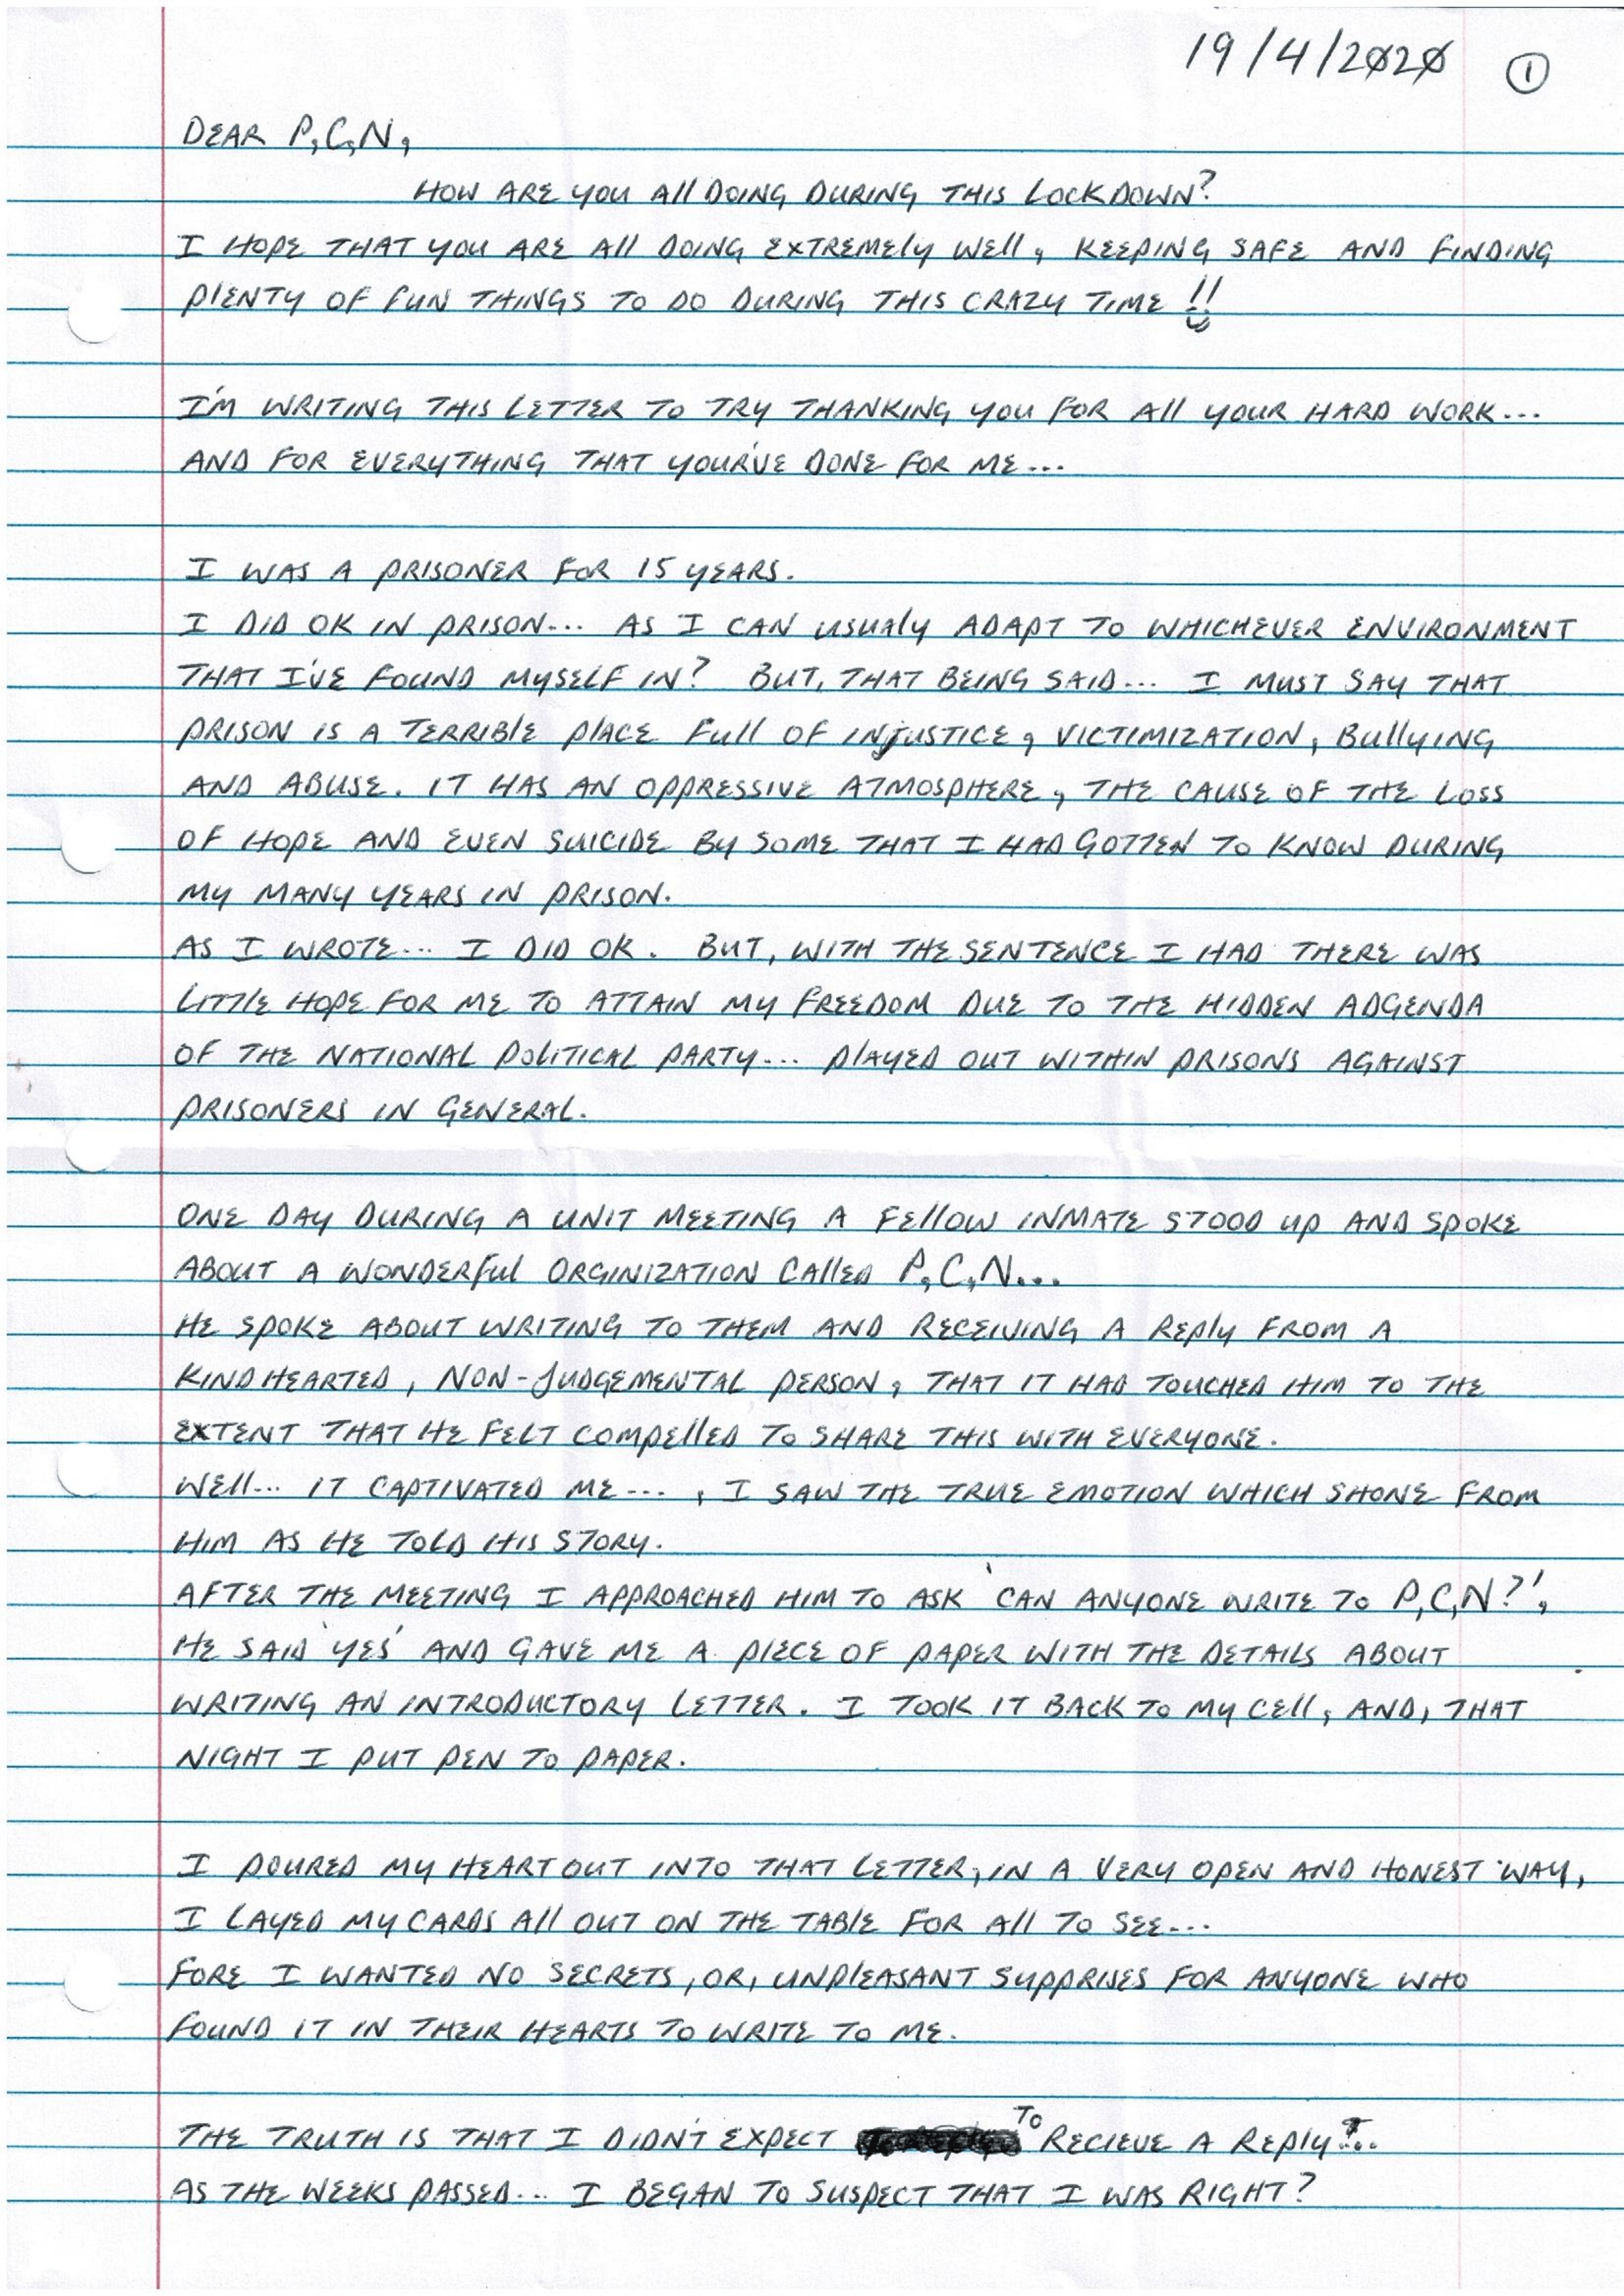 19/4/2020 ①
DEAR P,C,N,
HOW ARE YOU All DOING DURING THIS LOCKDOWN?
I HOPE THAT YOU ARE All DOING EXTREMELY WEll, KEEPING SAFE AND FINDING
PLENTY OF FUN THINGS TO DO DURING THIS CRAZY TIME !!
I'M WRITING THIS LETTER TO TRY THANKING YOU FOR All YOUR HARD WORK...
AND FOR EVERYTHING THAT YOUR'VE DONE FOR ME...
I WAS A PRISONER FOR 15 YEARS.
I DID OK IN PRISON... AS I CAN USUALY ADAPT TO WHICHEVER ENVIRONMENT
THAT I'VE FOUND MYSELF IN? BUT, THAT BEING SAID... I MUST SAY THAT
PRISON IS A TERRIBLE PLACE FULL OF INJUSTICE, VICTIMIZATION, BULLYING
AND ABUSE. IT HAS AN OPPRESSIVE ATMOSPHERE, THE CAUSE OF THE LOSS
OF HOPE AND EVEN SUICIDE BY SOME THAT I HAD GOTTEN TO KNOW DURING
MY MANY YEARS IN PRISON.
AS I WROTE... I DID OK. BUT, WITH THE SENTENCE I HAD THERE WAS
LITTLE HOPE FOR ME TO ATTAIN MY FREEDOM DUE TO THE HIDDEN ADGENDA
OF THE NATIONAL POLITICAL PARTY... PLAYED OUT WITHIN PRISONS AGAINST
PRISONERS IN GENERAL.
ONE DAY DURING A UNIT MEETING A FELLOW INMATE STOOD UP AND SPOKE
ABOUT A WONDERFUL ORGINIZATION CALLED P,C,N...
HE SPOKE ABOUT WRITING TO THEM AND RECEIVING A REPLY FROM A
KINDHEARTED, NON-JUDGEMENTAL PERSON, THAT IT HAD TOUCHED HIM TO THE
EXTENT THAT HE FELT COMPELLED TO SHARE THIS WITH EVERYONE.
WELL... IT CAPTIVATED ME..., I SAW THE TRUE EMOTION WHICH SHONE FROM
HIM AS HE TOLD HIS STORY.
AFTER THE MEETING I APPROACHED HIM TO ASK 'CAN ANYONE WRITE TO P,C,N?',
HE SAID 'YES' AND GAVE ME A PIECE OF PAPER WITH THE DETAILS ABOUT
WRITING AN INTRODUCTORY LETTER. I TOOK IT BACK TO MY CELL, AND, THAT
NIGHT I PUT PEN TO PAPER.
I POURED MY HEART OUT INTO THAT LETTER, IN A VERY OPEN AND HONEST WAY,
I LAYED MY CARDS ALL OUT ON THE TABLE FOR ALL TO SEE...
FORE I WANTED NO SECRETS, OR, UNPLEASANT SUPPRISES FOR ANYONE WHO
FOUND IT IN THEIR HEARTS TO WRITE TO ME.
THE TRUTH IS THAT I DIDN'T EXPECT TO RECIEVE A REPLY?...
AS THE WEEKS PASSED... I BEGAN TO SUSPECT THAT I WAS RIGHT?